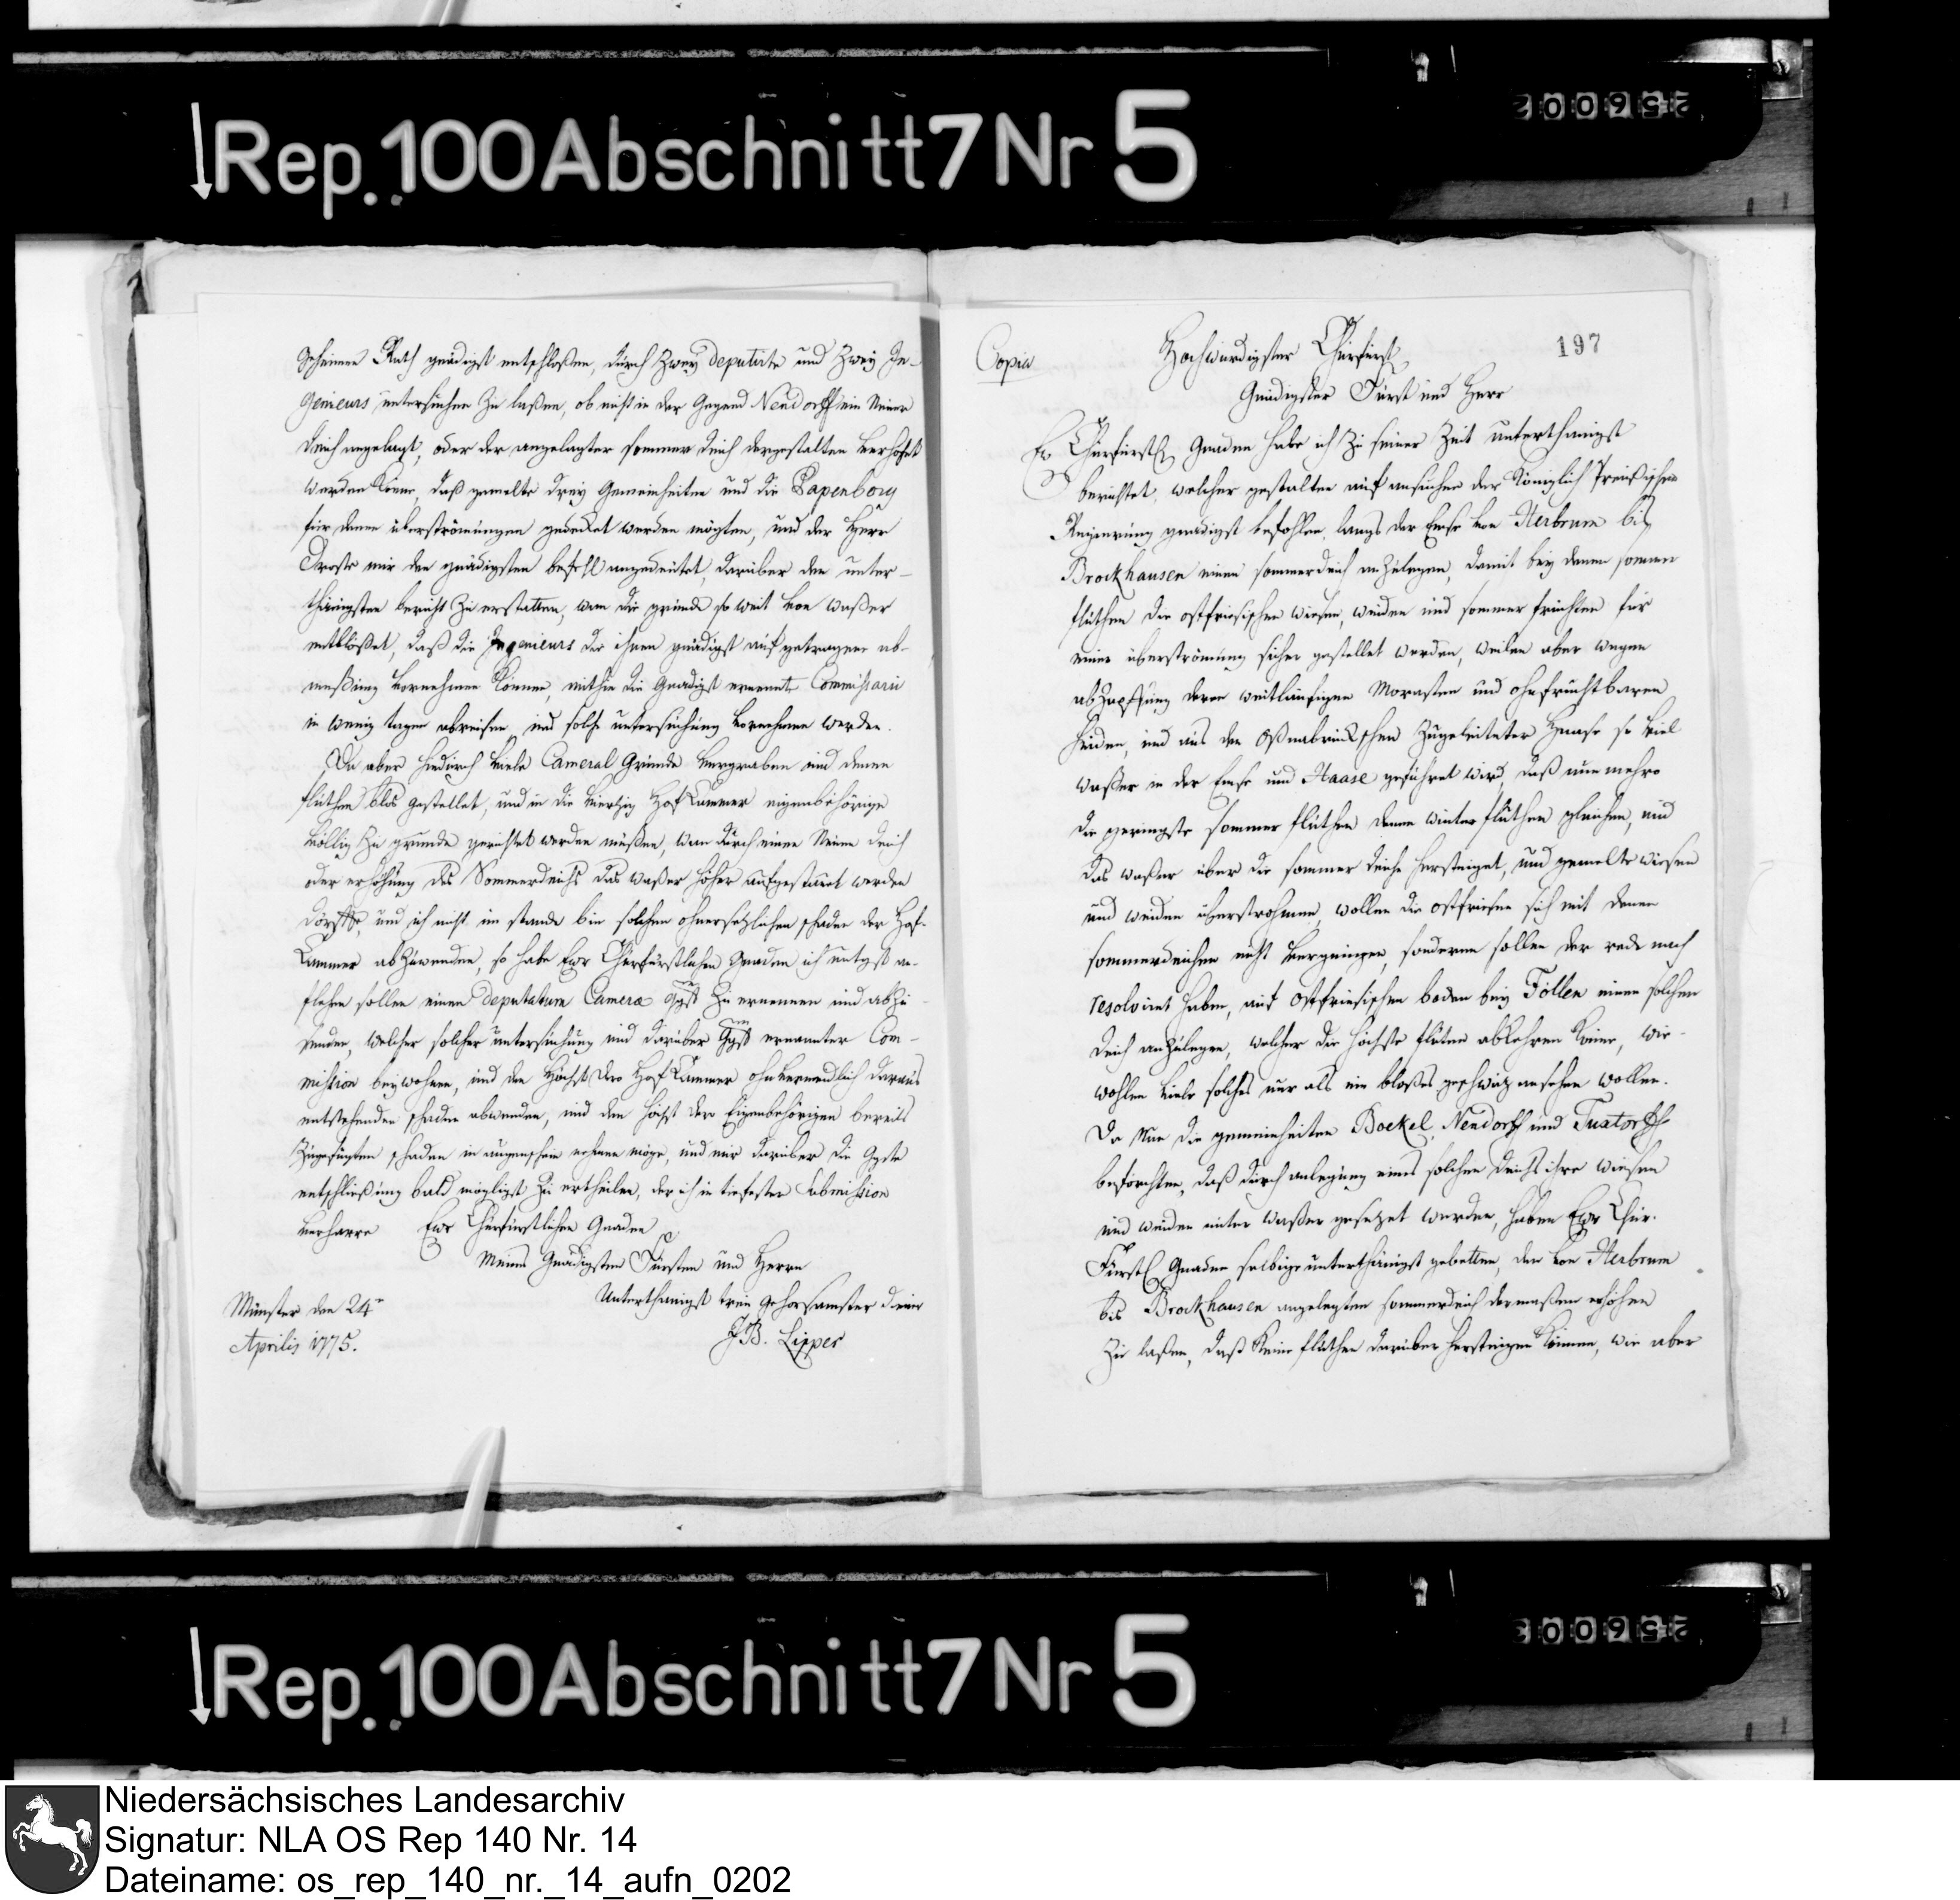 Rep. 100 Abschnitt 7 Nr 5
256002
geheimen Rath gnädigst entschloßen, durch Zwey deputirte und Zwey In-
genieurs untersuchen zu laßen, ob nicht in der Gegend Nendorff ein neuer
Deich angelegt, oder der angelegter sommer deich dergestalten verhöhet
werden könne, daß gemelte drey Gemeinheiten und die Papenborg
für denen überströmungen gedecket werden mögten, und der Herr
Droste mir den gnädigsten befehl angedeutet, darüber den unter-
thänigsten bericht zu erstatten, wan die gründe so weit von waßer
entblößet, daß die Ingenieurs die ihnen gnädigst aufgetragene ab-
meßung vornehmen können, mithin die Gnädigst ernente Commissarii
in wenig tagen abreisen und solche untersuchung vornehmen werden.
Da aber hiedurch viele Cameral Gründe vergraben und denen
fluthen blos gestellet, und in die vierzig HofKammer eigenbehörige
völlig zu grunde gerichtet werden müßen, wan durch einen neuen deich
oder erhöhung des Sommerdeichs das waßer höher aufgestauet werden
dörffte, und ich nicht im stande bin solchen ohnersezlichen schaden der Hof-
Kammer abzuwenden, so habe Ewr Churfürstlichen Gnaden ich untgst an-
flehen sollen einen deputatum Camerae ggst zu ernennen und abzu-
senden, welcher solcher untersuchung und darüber ggst ernannter Com-
mission beywohnen, und den Höchst dero HofKammer ohnvermeidlich daraus
entstehenden schaden abwenden, und den höchst dero Eigenbehörigen bereits
zugefügten schaden in augenschein nehmen möge, und mir darüber die Ggste
entschließung bald mögligst zu ertheilen, der ich in tiefester Submission
verharre Ewr Churfürstlichen Gnaden
Meines Gnädigsten Fürsten und Herrn
Münster den 24ten Unterthänigst treu gehorsamster diener
Aprilis 1775. J B. Lipper
197
Copia Hochwürdigster Churfürst
Gnädigster Fürst und Herr
Ew Churfürstl Gnaden habe ich zu seiner Zeit unterthänigst
berichtet, welcher gestalten auf ansuchen der Königlich Preußischen
Regierung gnädigst befohlen, langs der Emse von Herbrum bis
Brockhausen einen sommerdeich anzulegen, damit bey denen sommer
fluthen die ostfriesischen wiesen, weiden und sommer früchten für
einer überströmung sicher gestellet werden, weilen aber wegen
abzapffung deren weitläufigen Morasten und ohnfruchtbaren
Heiden, und aus den Oßnabrückschen zugeleiteter Haase so viel
waßer in der Emse und Haase geführet wird, daß nun mehro
die geringste sommer fluthen denen winter fluthen gleichen, und
das waßer über die sommer deiche hersteiget, und gemelte wiesen
und weiden überstrohmen, wollen die ostfriesen sich mit denen
sommerdeichen nicht vergnügen, sonderen sollen der rede nach
resolviret haben, auf ostfriesischen boden bey Föllen einen solchen
deich anzulegen, welcher die höchste fluten abkehren könne, wie-
wohlen viele solches nur als ein bloßes geschwäz ansehen wollen.
Da Nun die gemeinheiten Bockel, Nendorff und Tuxtorff
beförchten, daß durch anlegung eines solchen deichs ihre wiesen
und weiden unter waßer gesetzet werden, haben Ewr Chur-
Fürstl Gnaden selbige unterthänigst gebetten, den von Herbrum
bis Brockhausen angelegten sommerdeich dermaßen erhöhen
zu laßen, daß keine fluthen darüber hersteigen können, wie aber
Rep. 100 Abschnitt 7 Nr 5
256003
Niedersächsisches Landesarchiv
Signatur: NLA OS Rep 140 Nr. 14
Dateiname: os_rep_140_nr._14_aufn_0202